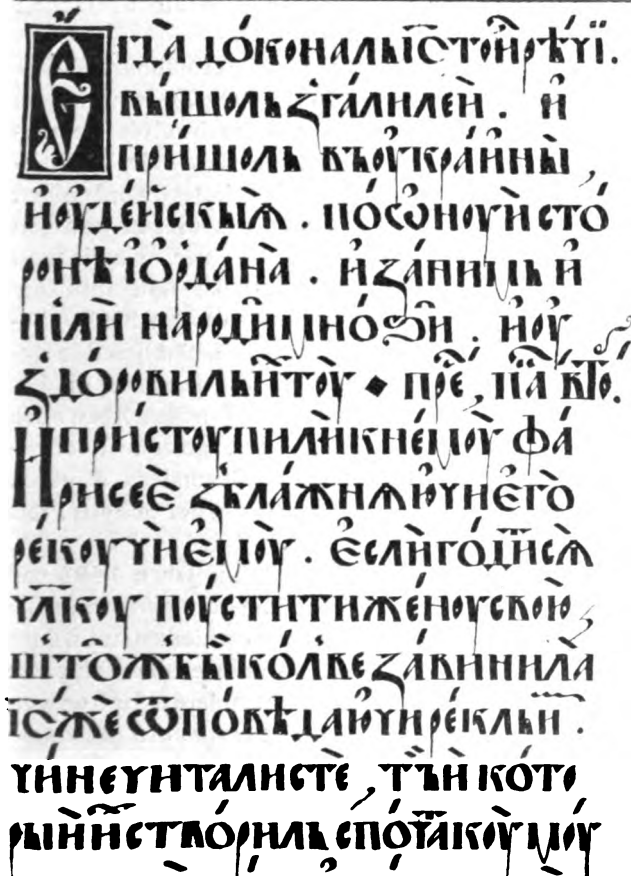 Егда̀ докона́лъ і҃с то́и рѣ́чи.
вы́шолъ з галиле́и . и҆
прїи́шолъ въ оу҆кра́ины̀ ,
и҆оуде́искыѧ̀ . по ѡ҆ноуѝ сто́
ронѣ іѻ҆рда́на̀ . и҆ за́нимь и҆
шлѝ наро́ди мно́зіи . и҆оу
здоро́вилъ и҆х тоу̀ ◆
И при́стоупилѝ к не́моу̀ фа́
рисеє̀ зблажнѧючи єго̀
ре́коучѝ ємоу̀ . єслѝ годи́тсѧ̀
чл҃кⷪоу поу́стити жено́у свою̀ ,
што̀ ж бы ко́лве за́винила̀
і҃с жѐ ѿпо́вѣдаючи ре́клъ и҆м .
чи́ не читали стѐ , тъѝ ко́то
рыѝ и҆х ство́рилъ с поча́ткоу̀ моу́